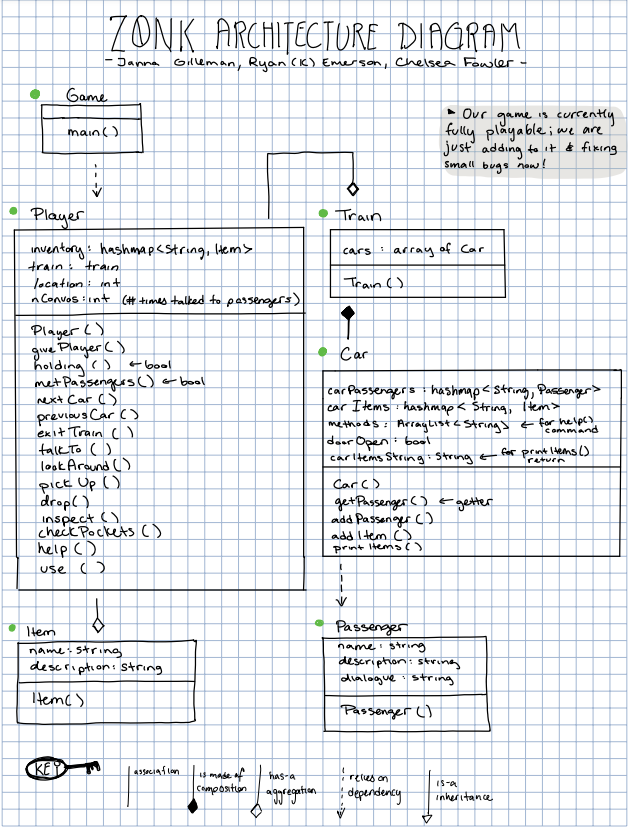 ZONK ARCHITECTURE DIAGRAM
- Janna Gilleman, Ryan (K) Emerson, Chelsea Fowler -
Game
main()
► Our game is currently
fully playable; we are
just adding to it & fixing
small bugs now!
Player
inventory: hashmap<String, Item>
train: train
location: int
nConvos: int (# times talked to passengers)
Player()
givePlayer()
holding() ← bool
metPassengers() ← bool
nextCar()
previousCar()
exitTrain()
talkTo()
lookAround()
pickUp()
drop()
inspect()
checkPockets()
help()
use()
Train
cars: array of Car
Train()
Car
carPassengers: hashmap<String, Passenger>
carItems: hashmap<String, Item>
methods: ArrayList<String> ← for help() command
doorOpen: bool
carItemsString: String ← for printItems() return
Car()
getPassenger() ← getter
addPassenger()
addItem()
printItems()
Item
name: string
description: string
Item()
Passenger
name: string
description: string
dialogue: string
Passenger()
KEY
association
is made of
composition
has-a
aggregation
relies on
dependency
is-a
inheritance